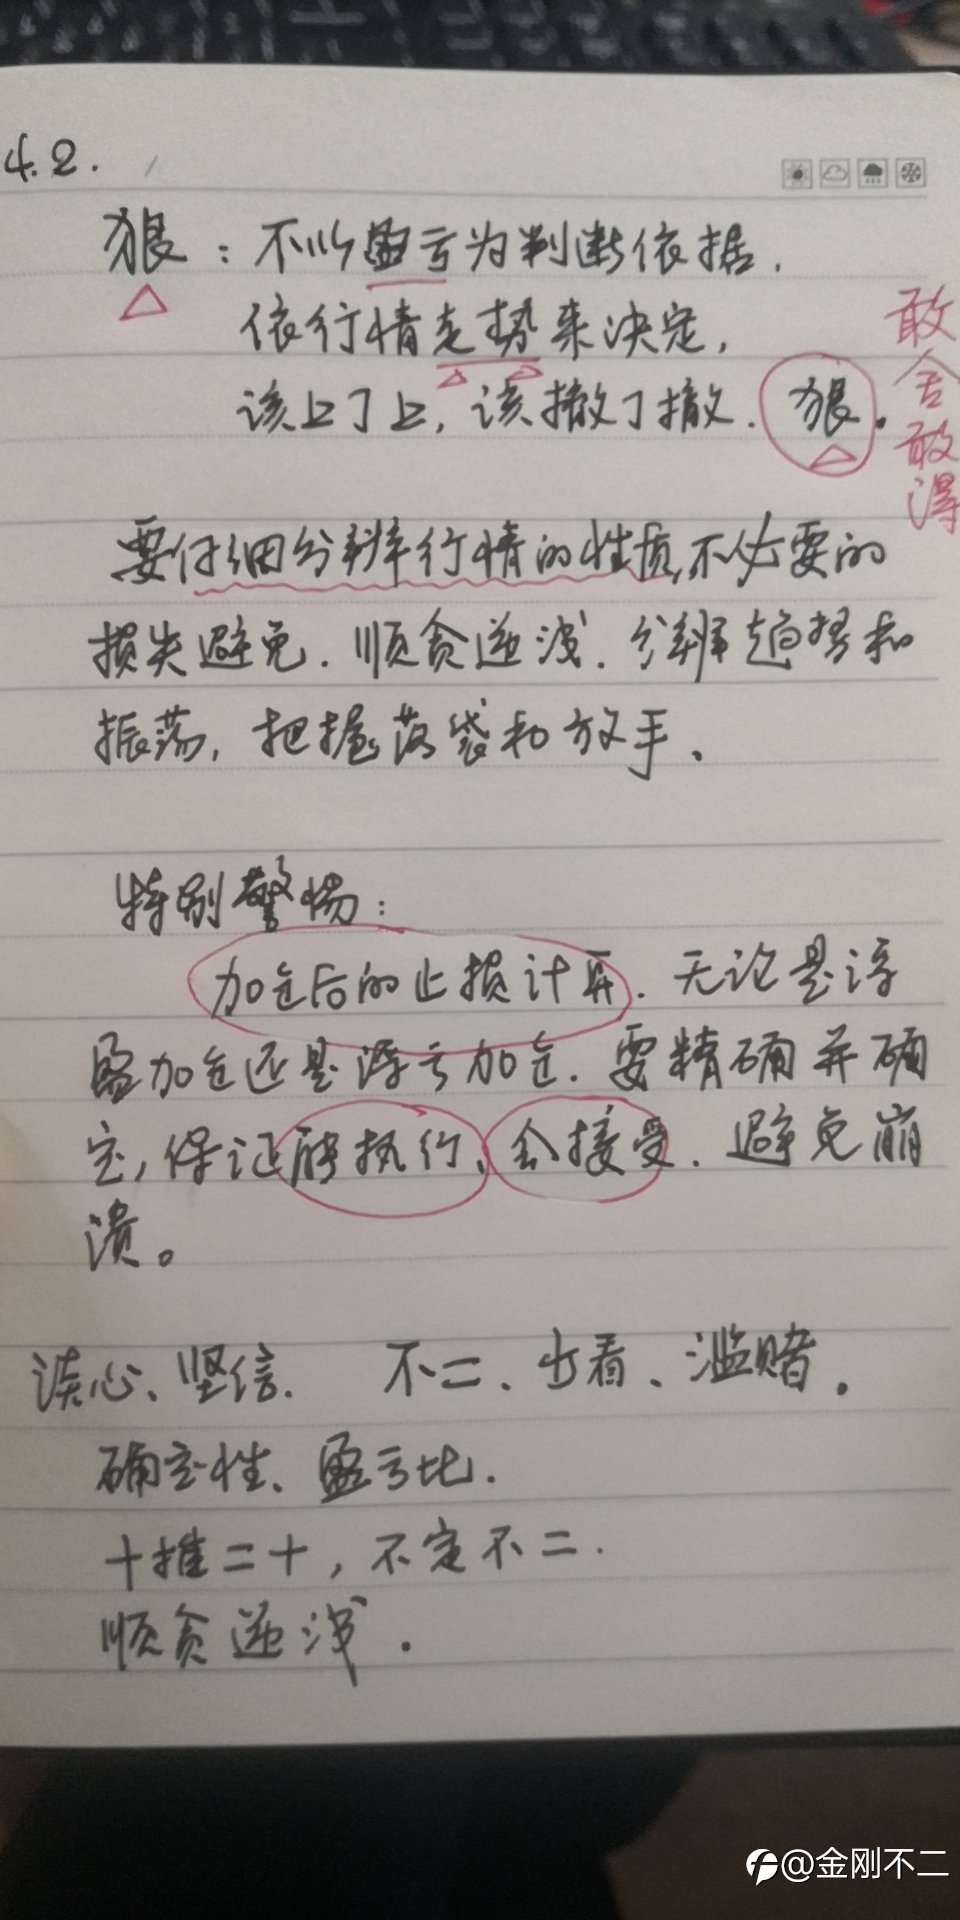 4.2.
狠：不以盈亏为判断依据，
依行情走势来决定，
该上了上，该撤了撤．狠。
敢舍敢得
要仔细分辨行情的性质，不必要的
损失避免．顺贪逆浅．分辨趋势和
振荡，把握落袋和放手．
特别警惕：
加仓后的止损计算．无论是浮
盈加仓还是浮亏加仓．要精确并确
定，保证能执行、会接受．避免崩
溃。
读心、坚信． 不二、少看、滥赌．
确定性、盈亏比．
十推二十，不定不二．
顺贪逆浅．
@金刚不二